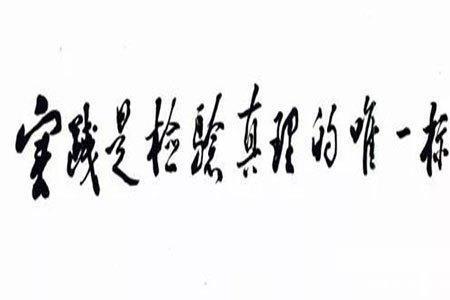 实践是检验真理的唯一标